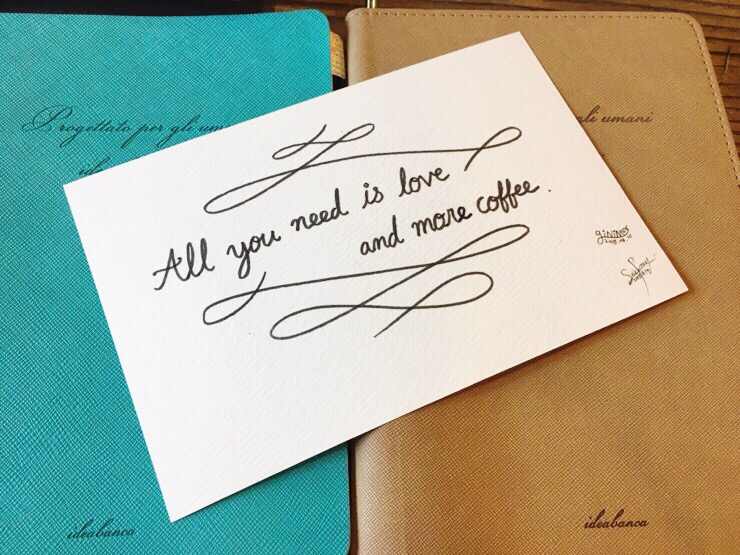 Progettato per gli um
gli umani
All you need is love
and more coffee.
ideabanca
ideabanca